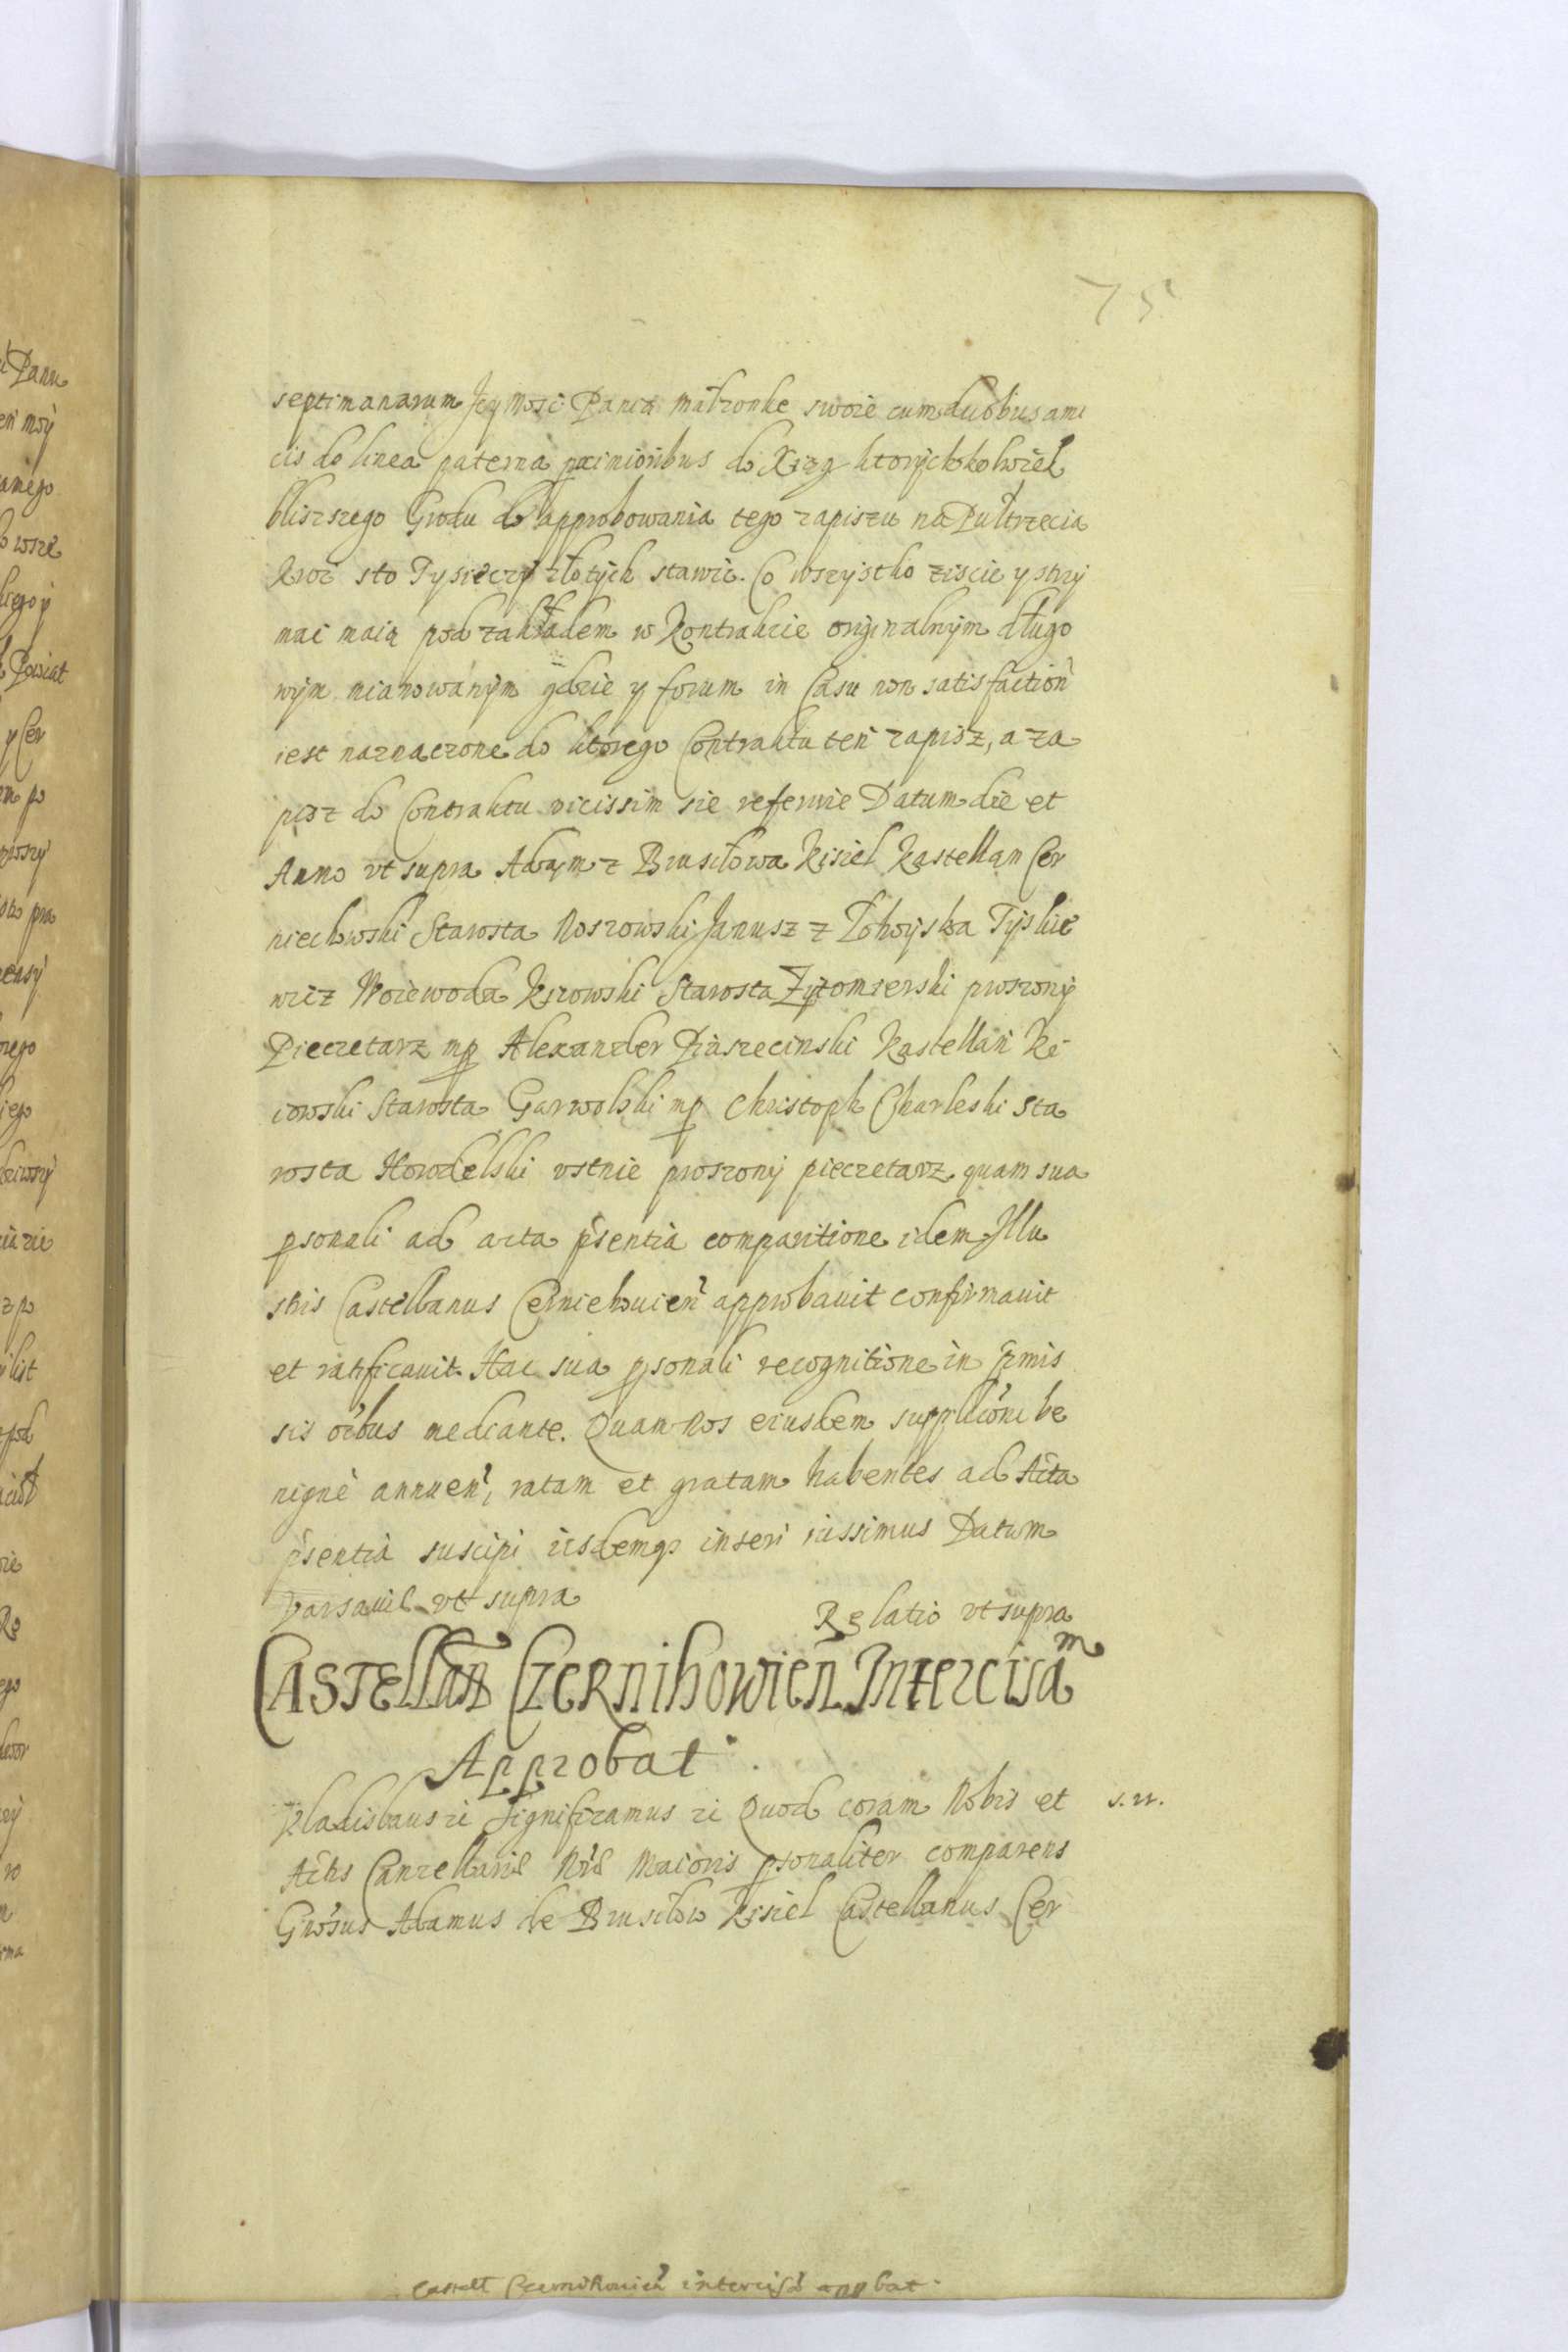 75
septimanarum Jey Mosci Pania małzonke swoie cum duobus ami
cis de linea paterna pximioribus do Xiąg ktorychkolwiek
bliszszego Grodu do approbowania tego zapiszu na Pułtrzecia
kroc sto Tysięczy złotych stawic. Co wszystko ziscic y strzy
mac maią pod zakładem w Kontrakcie orijginalnym długo
wym mianowanym gdzie y forum in Casu non satisfaction
iest naznaczone do ktorego Contraktu ten zapisz, a za
pisz do Contraktu vicissim sie referuie Datum die et
Anno vt supra Adam z Brusiłowa Kisiel Kastellan Cer
niechowski Starosta Noszowski Janusz z Łohoyska Tyskie
wicz Woiewoda Kijowski Starosta Zytomierski proszony
Pieczetarz mp Alexander Piaseczinski Kastellan Ki-
iowski Starosta Garwolski mp Christoph Charleski Sta
rosta Horodelski vstnie proszony pieczetarz quam sua
psonali ad acta psentia comparitione idem Illu
stris Castellanus Czerniehouien approbauit confirmauit
et ratificauit Hac sua psonali recognitione in pmis
sis oibus mediante. Quam Nos eiusdem supplicôni be
nignè annuen, ratam et gratam habentes ad Acta
psentia suscipi iisdemq inseri iussimus Datum
Varsauię vt supra
Relatio vt supra
Castellan Czernihowien Intercisam
Approbat.
Vladislaus zc significamus zc Quod coram Nobis et
Actis Cancellarię Nrę Maioris psonaliter comparens
Gnosus Adamus de Brusiłow Kisiel Castellanus Cer
s. n.
Castell Czernihouien intercisa appbat